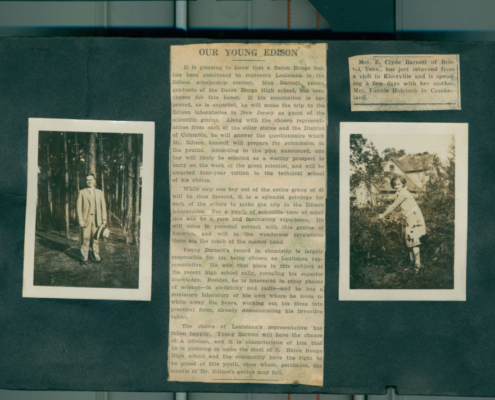 OUR YOUNG EDISON
It is pleasing to know that a Baton Rouge boy
has been nominated to represent Louisiana in the
Edison scholarship contest. Max Barnett, recent
graduate of the Baton Rouge High school, has been
chosen for this honor. If his nomination is ap-
proved, as is expected, he will make the trip to the
Edison laboratories in New Jersey as guest of the
scientific genius. Along with the chosen represent-
atives from each of the other states and the District
of Columbia, he will answer the questionnaire which
Mr. Edison himself will prepare for submission to
the youths. According to the plan announced, one
boy will likely be selected as a worthy prospect to
carry on the work of the great scientist, and will be
awarded four-year tuition to the technical school
of his choice.
While only one boy out of the entire group of 49
will be thus favored, it is a splendid privilege for
each of the others to make the trip to the Edison
laboratories. For a youth of scientific turn of mind
this will be a rare and fascinating experience. He
will come in personal contact with this genius of
America, and will in the wonderous
there see the touch of the master hand.
Young Barnett's record in chemistry is largely
responsible for his being chosen as Louisiana rep-
resentative. He won first place in this subject at
the recent high school rally, revealing his superior
knowledge. Besides, he is interested in other phases
of science—in electricity and radio—and he has a
miniature laboratory of his own where he loves to
while away the hours, working out his ideas into
practical form, already demonstrating his inventive
talent.
The choice of Louisiana's representative has
fallen happily. Young Barnett will have the chance
of a lifetime, and it is characteristic of him that
he is planning to make the most of it. Baton Rouge
High school and the community have the right to
be proud of this youth, upon whom, perchance, the
mantle of Mr. Edison's genius may fall.
Mrs. E. Clyde Barnett of Bris-
tol, Tenn., has just returned from
a visit in Knoxville and is spend-
ing a few days with her mother,
Mrs. Fannie Holcomb in Cumber-
land.